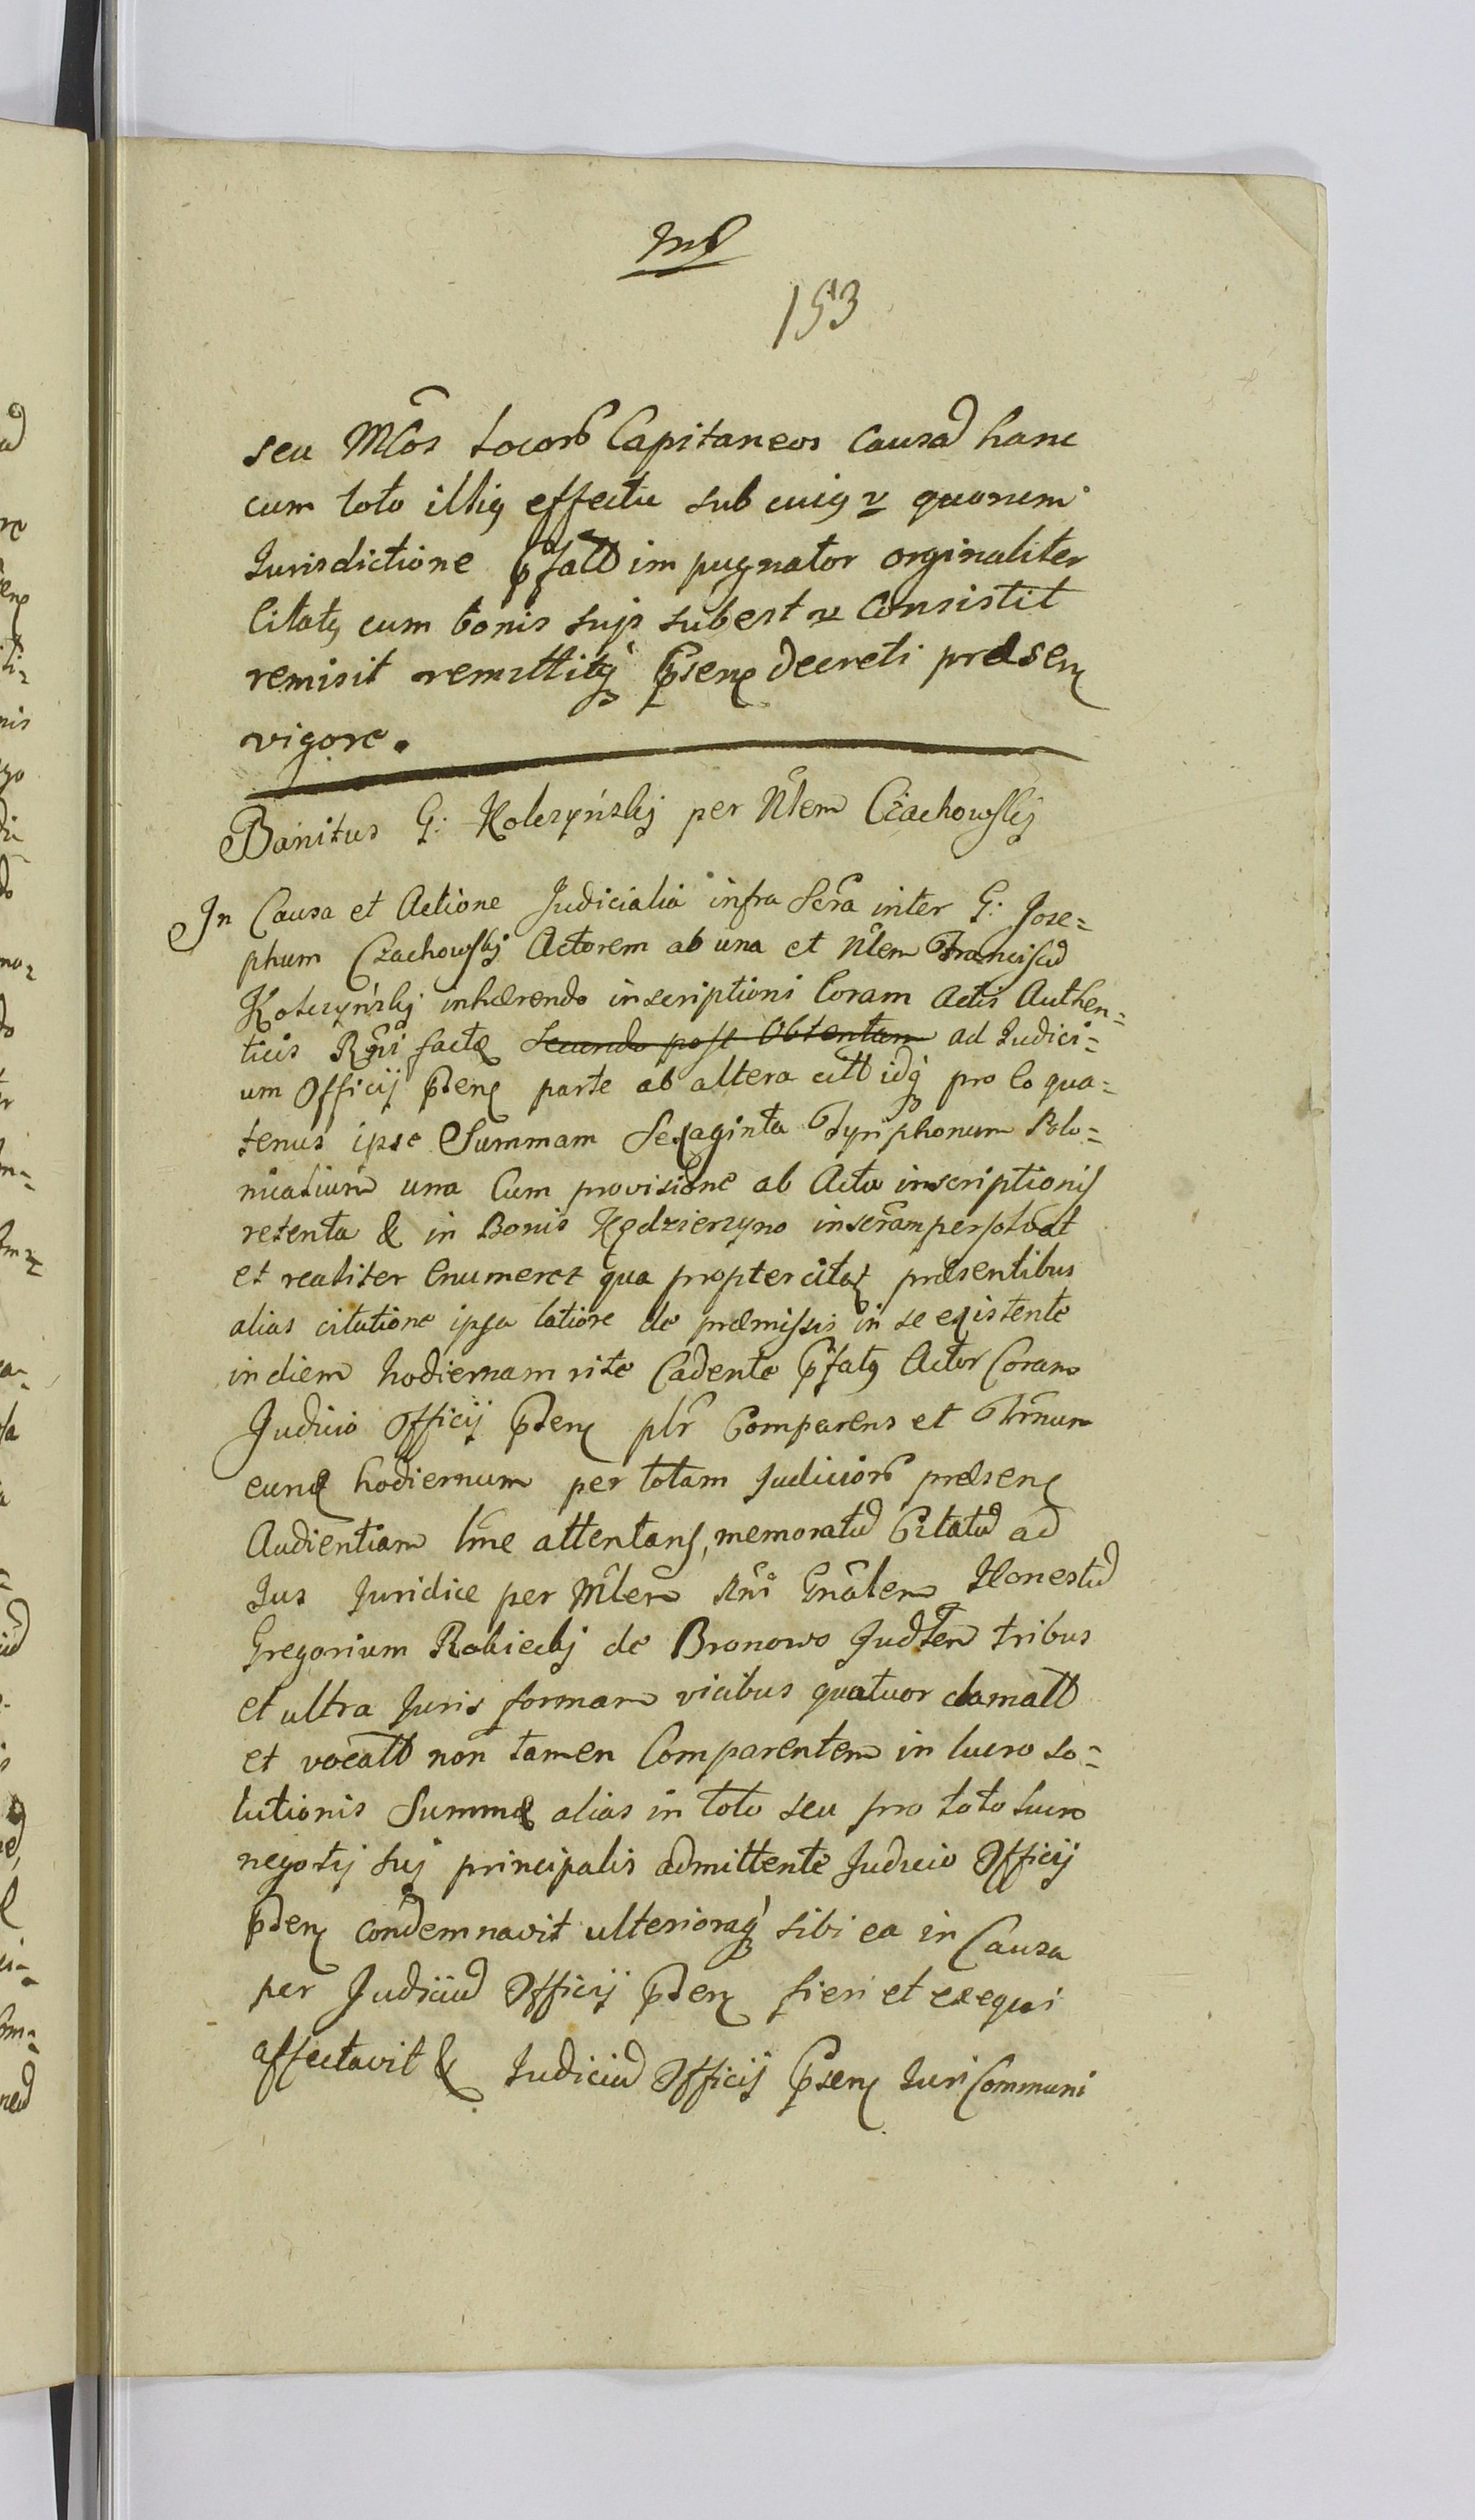 153
seu Mĉos Locorb Capitaneos Causam hanc
cum toto illiq effectu sub cuiq v quorum
Jurisdictione p̃fatt im pugnator orginaliter
Citatq cum bonis sujs subest v Consistit
remisit remittitq p̃senẽ decreti præsenẽ
vigore.
Banitus G: Kolczyńskj per Nlem Czachowskj
In Causa et Actione Judicialia infra Scra inter G: Jose=
phum Czachowskj Actorem ab una et Nlem Franciscum
Kolczyńskj inhærendo inscriptioni Coram Actis Authen=
ticis Rgni factæ Secundo post Obtentam ad Judici=
um Officij p̃tenẽ parte ab altera citt idq pro eo qua=
tenus ipse Summam Sexaginta Tynphonum Polo=
nicalium una Cum provisione ab Acta inscriptionis
retenta & in Bonis Kędzierzyno inscram persolvat
et realiter Enumeret qua propter citaẽ præsentibus
alias citatione ipsa latiore de præmissis in se existente
in diem hodiernam rite Cadente p̃fatq Actor Coram
Judicio Officij p̃tenẽ plr Comparens et Trnum
eunđ hodiernum per totam Judiciorb præsenẽ
Audientiam lme attentans, memoratum Citatum ad
Jus Juridice per Mlem Rni Gnalem Honestum
Gregorium Rakieckj de Bronowo Judtem tribus
et ultra Juris formam vicibus quatuor clamatt
et vocatt non tamen Comparentem in lucro so=
lutionis Summæ alias in toto seu pro toto lucro
negotij suj principalis admittente Judicio Officij
p̃tenẽ condemnavit ulterioraq sibi ea in Causa
per Judicium Officij p̃tenẽ fieri et exequi
affectavit & Judicium Officij p̃senẽ Juri Communi